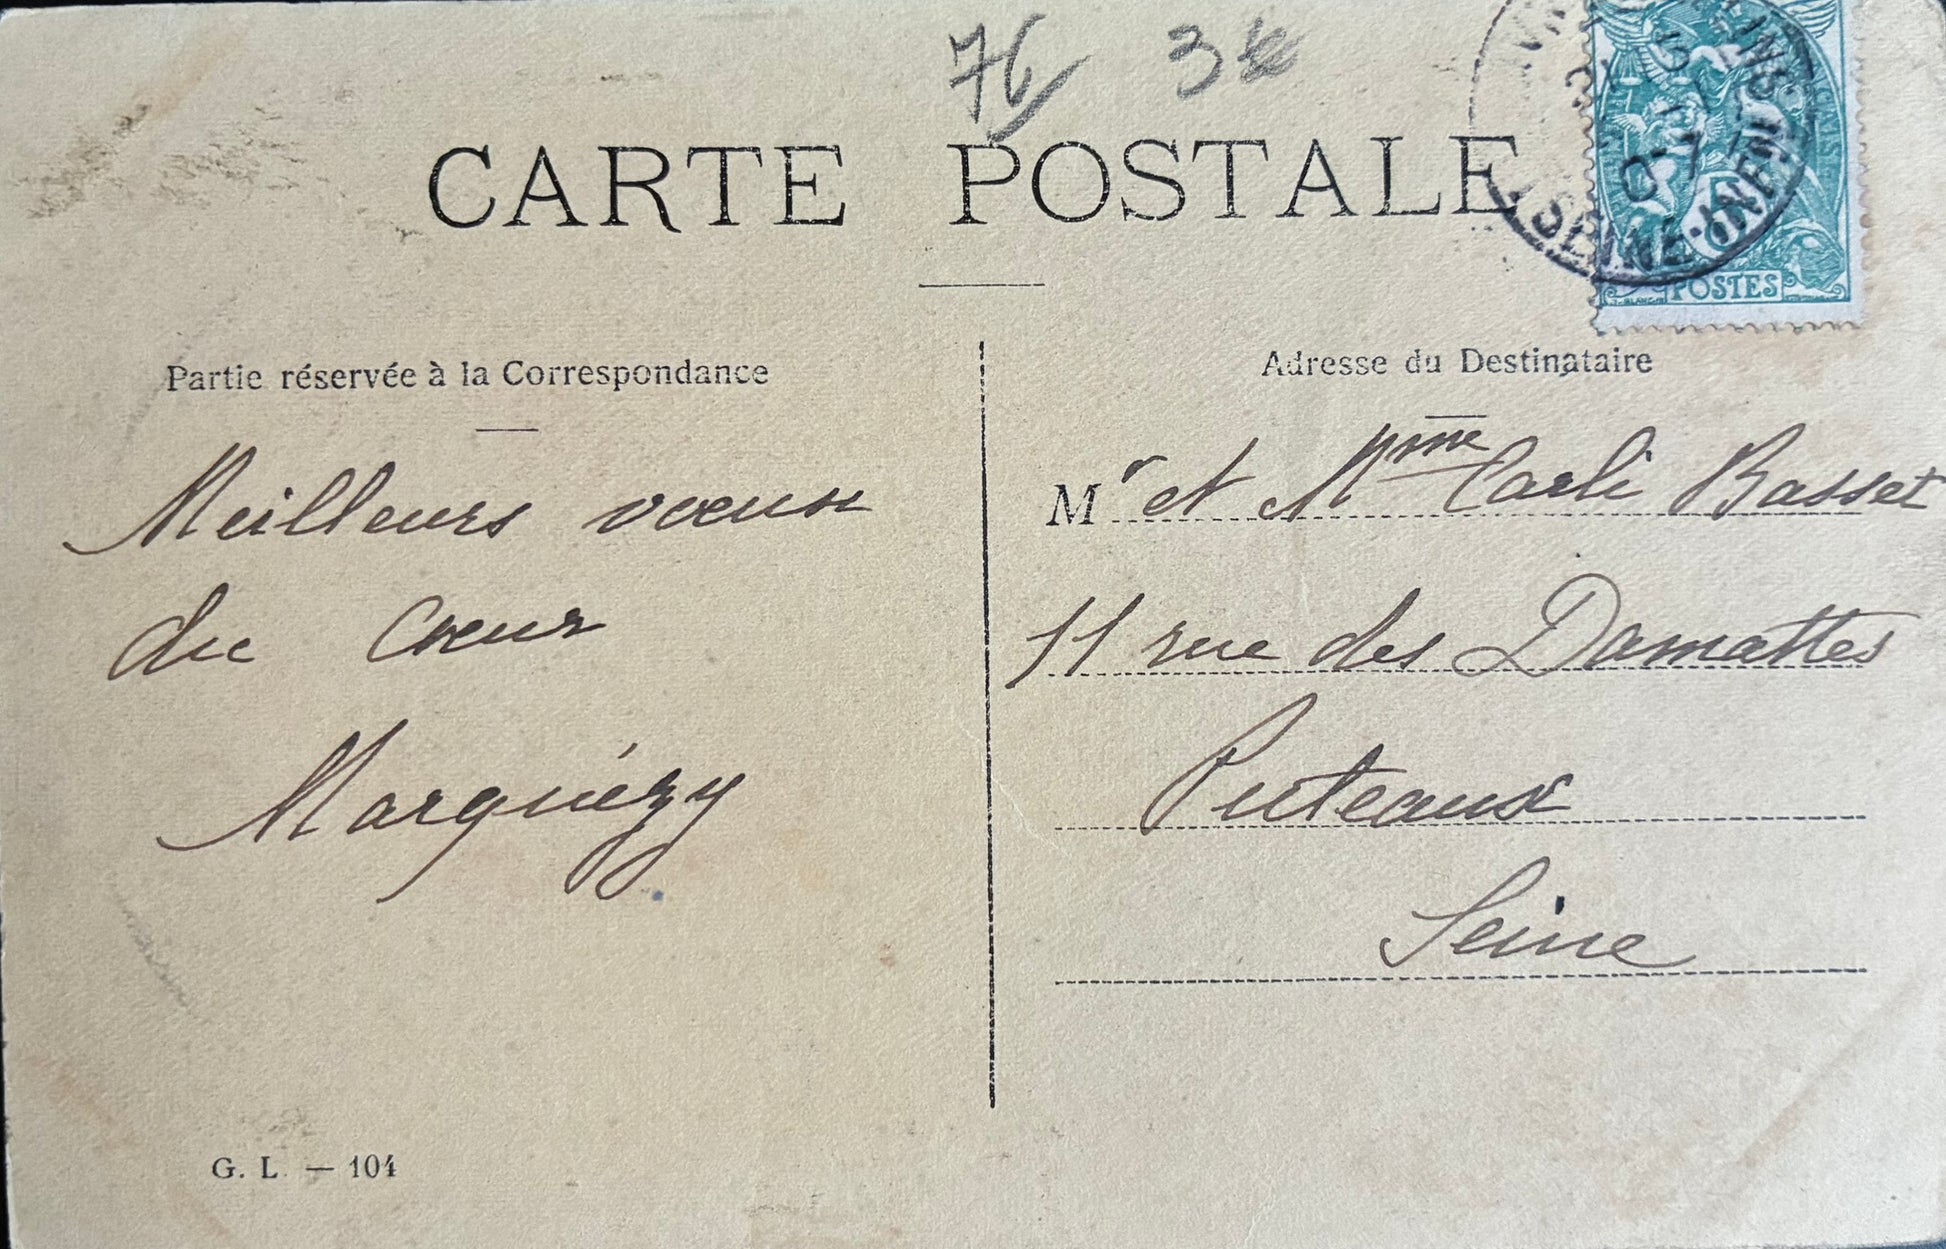 76 3
CARTE POSTALE
SEINE-INFRE
5
POSTES
Partie réservée à la Correspondance
Meilleurs vœux
du Cœur
Marguézy
G. L. — 104
Adresse du Destinataire
Mr et Mme Carli Basset
11 rue des Damattes
Puteaux
Seine